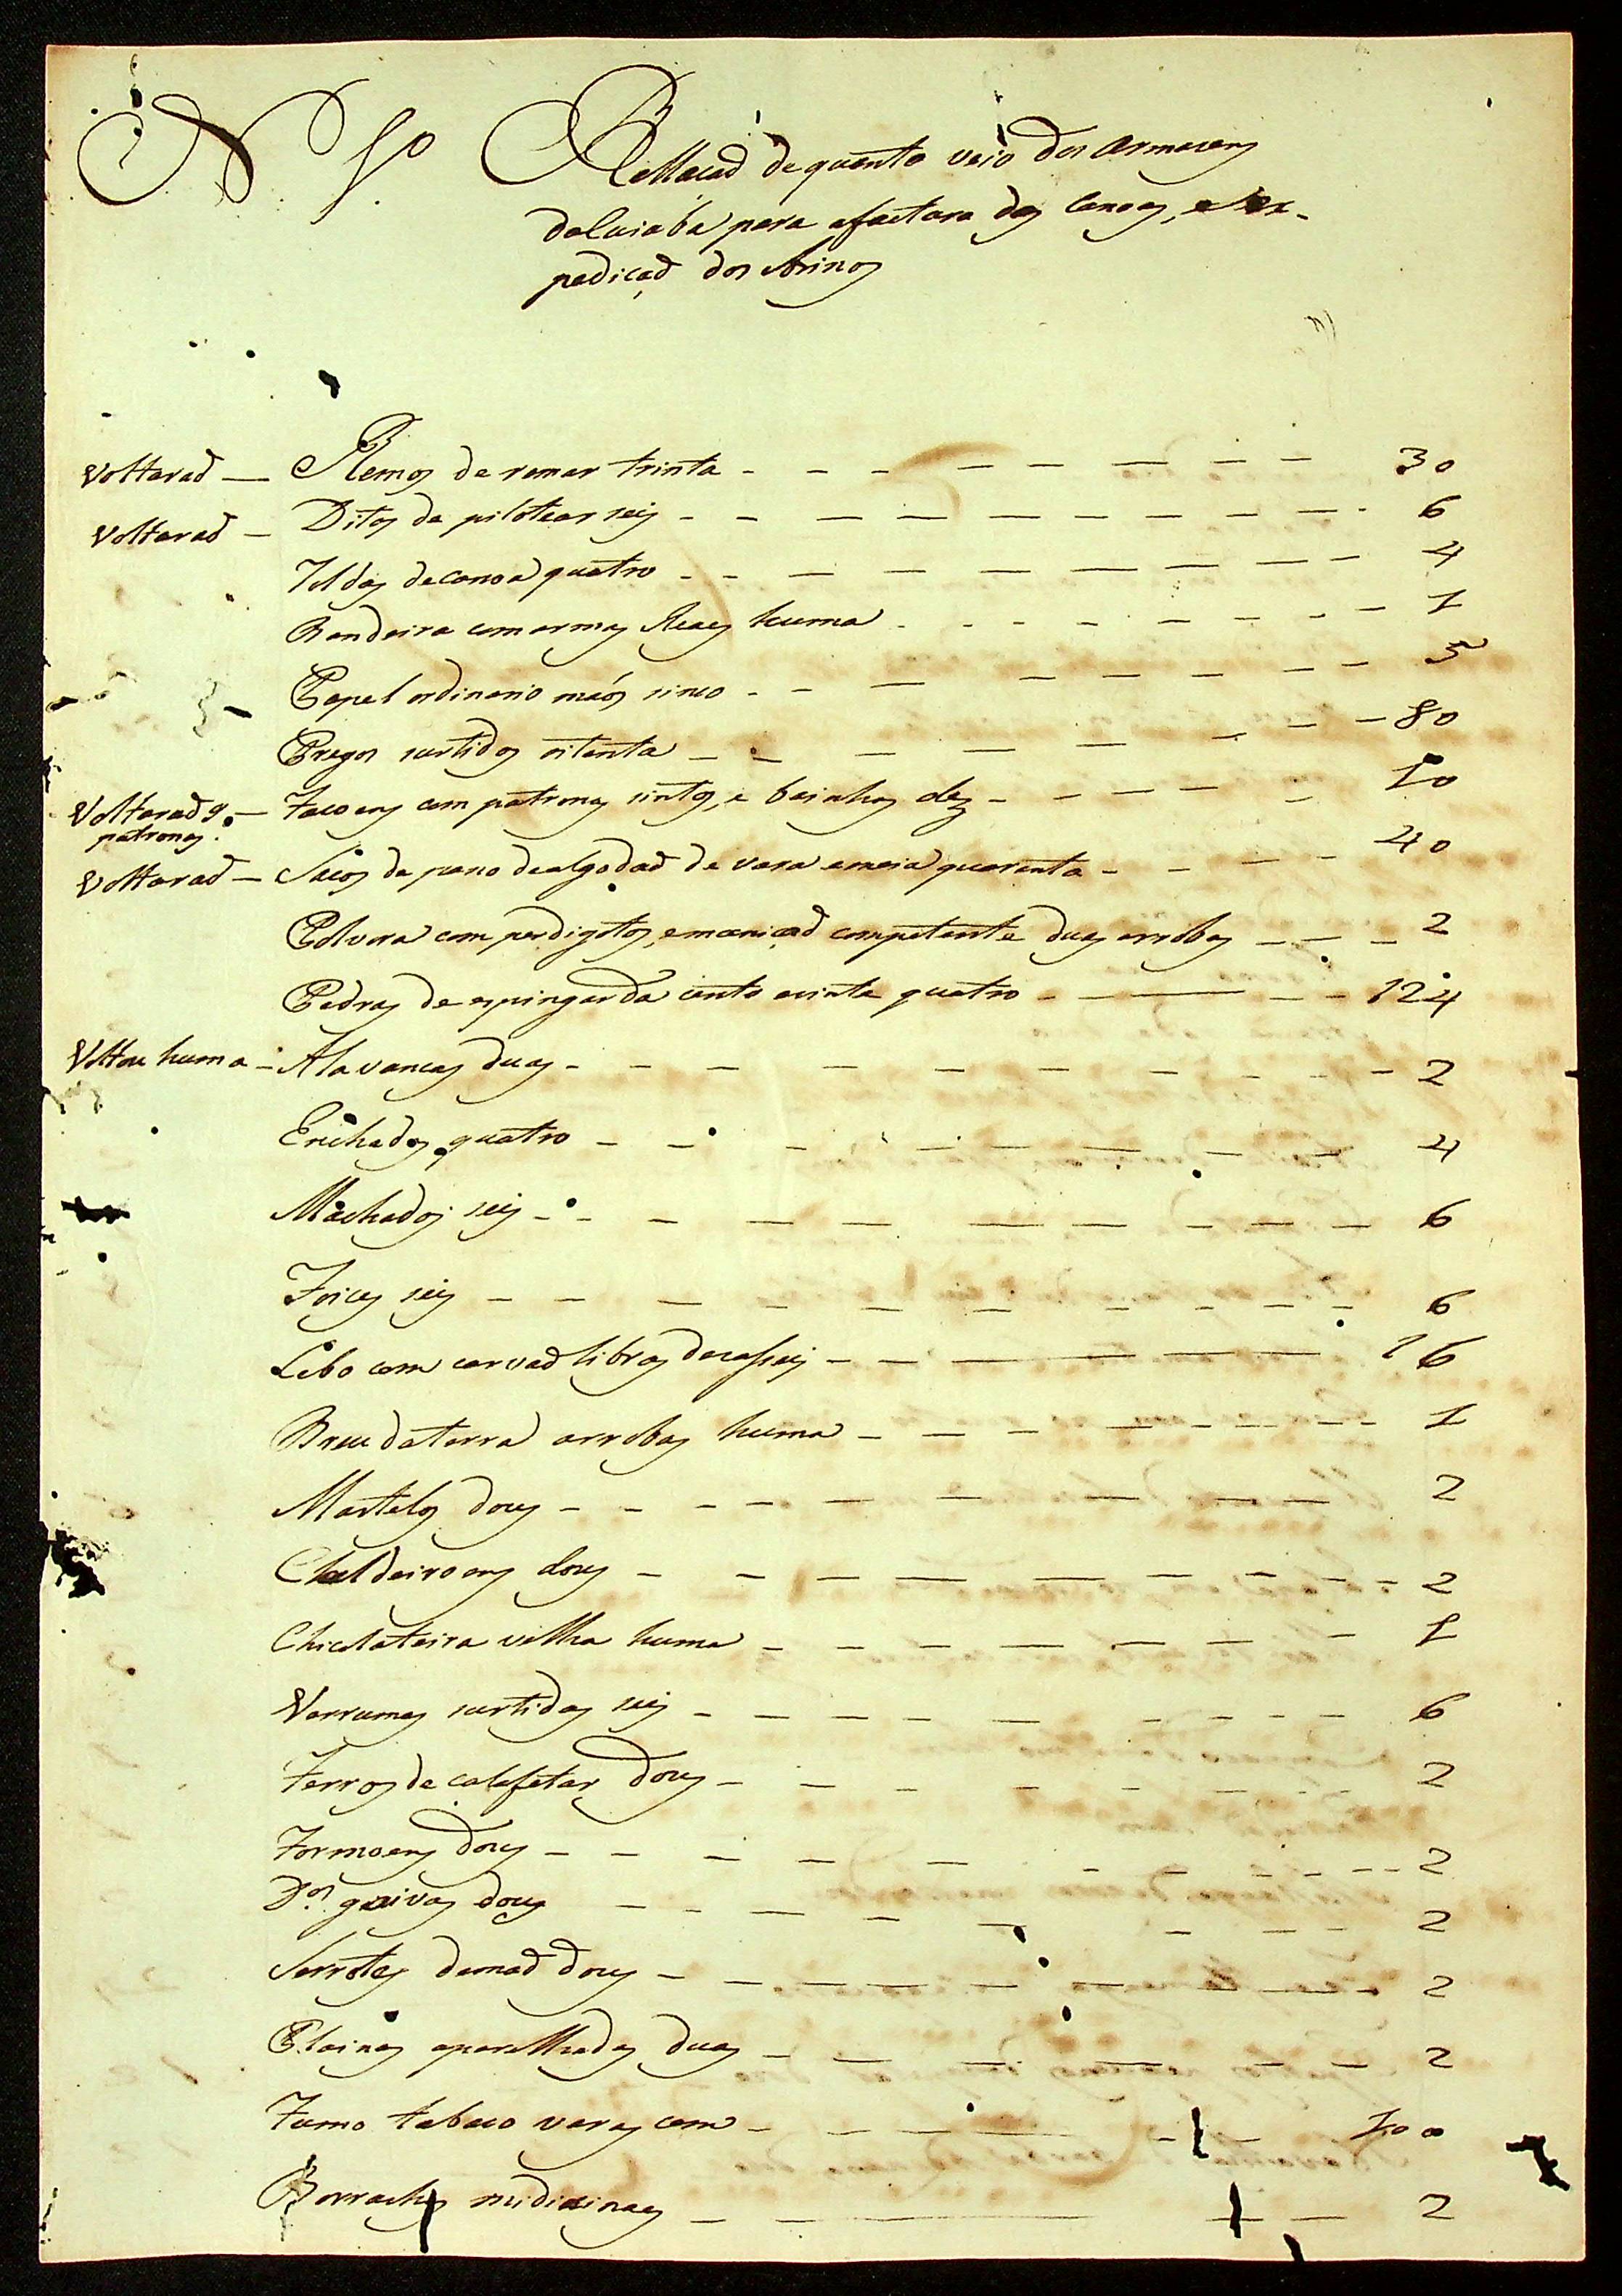 N. 1.º
Rellacaõ de quanto veio dos Armacens
do Cuiabá para a factura das Canoas, e ex-
pediçaõ dos Arinos
Voltaraõ — Remos de remar trinta - - - 30
Voltaraõ — Ditos de pilotear seis - - - 6
Toldas de canoa quatro - - - 4
Bandeira com armas Reaes huma - - - 1
Papel ordinario maós sinco - - - 5
Pregos surtidos oitenta - - - 80
Voltaraõ 9 — Facoens com patronas sintos, e bainhas dez - - - 10
patronas.
Voltaraõ — Sacos de pano de algodaõ de vara e meia quarenta - - - 40
Polvora com perdigotos, e moniçaõ competente duas arrobas - - - 2
Pedras de espingarda cento e vinte quatro - - - 124
Voltou huma — Alavancas duas - - - 2
Enchadas quatro - - - 4
Machados seis - - - 6
Foices seis - - - 6
Sebo com carvaõ libras decasseis - - - 16
Breu da terra arrobas huma - - - 1
Martelos dous - - - 2
Caldeiroens dous - - - 2
Chicolateira velha huma - - - 1
Verrumas surtidas seis - - - 6
Ferros de calafetar dous - - - 2
Formoens dous - - - 2
D.ºs goivas dous - - - 2
Serrotes de maõ dous - - - 2
Plainas aparelhadas duas - - - 2
Fumo tabaco varas cem - - - 100
Borrachas midicinaes - - - 2